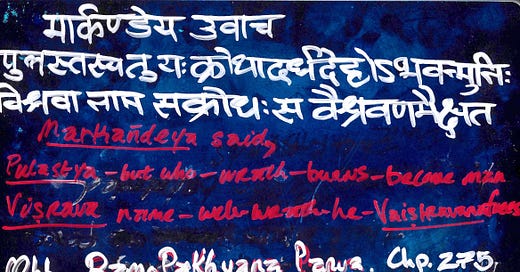 मार्कण्डेय उवाच
पुलस्तस्यतु यःक्रोधादर्धदेहोऽभवन्मुनिः
विश्रवा नाम सक्रोधःस वैश्रवणमैक्षत
Markandeya said,
Pulastya - but who - wrath - burns - became
Viṣrava name - wrath - he - Vaiskravana
Mbh. RamoPakhyana Parva. Chp. 275.